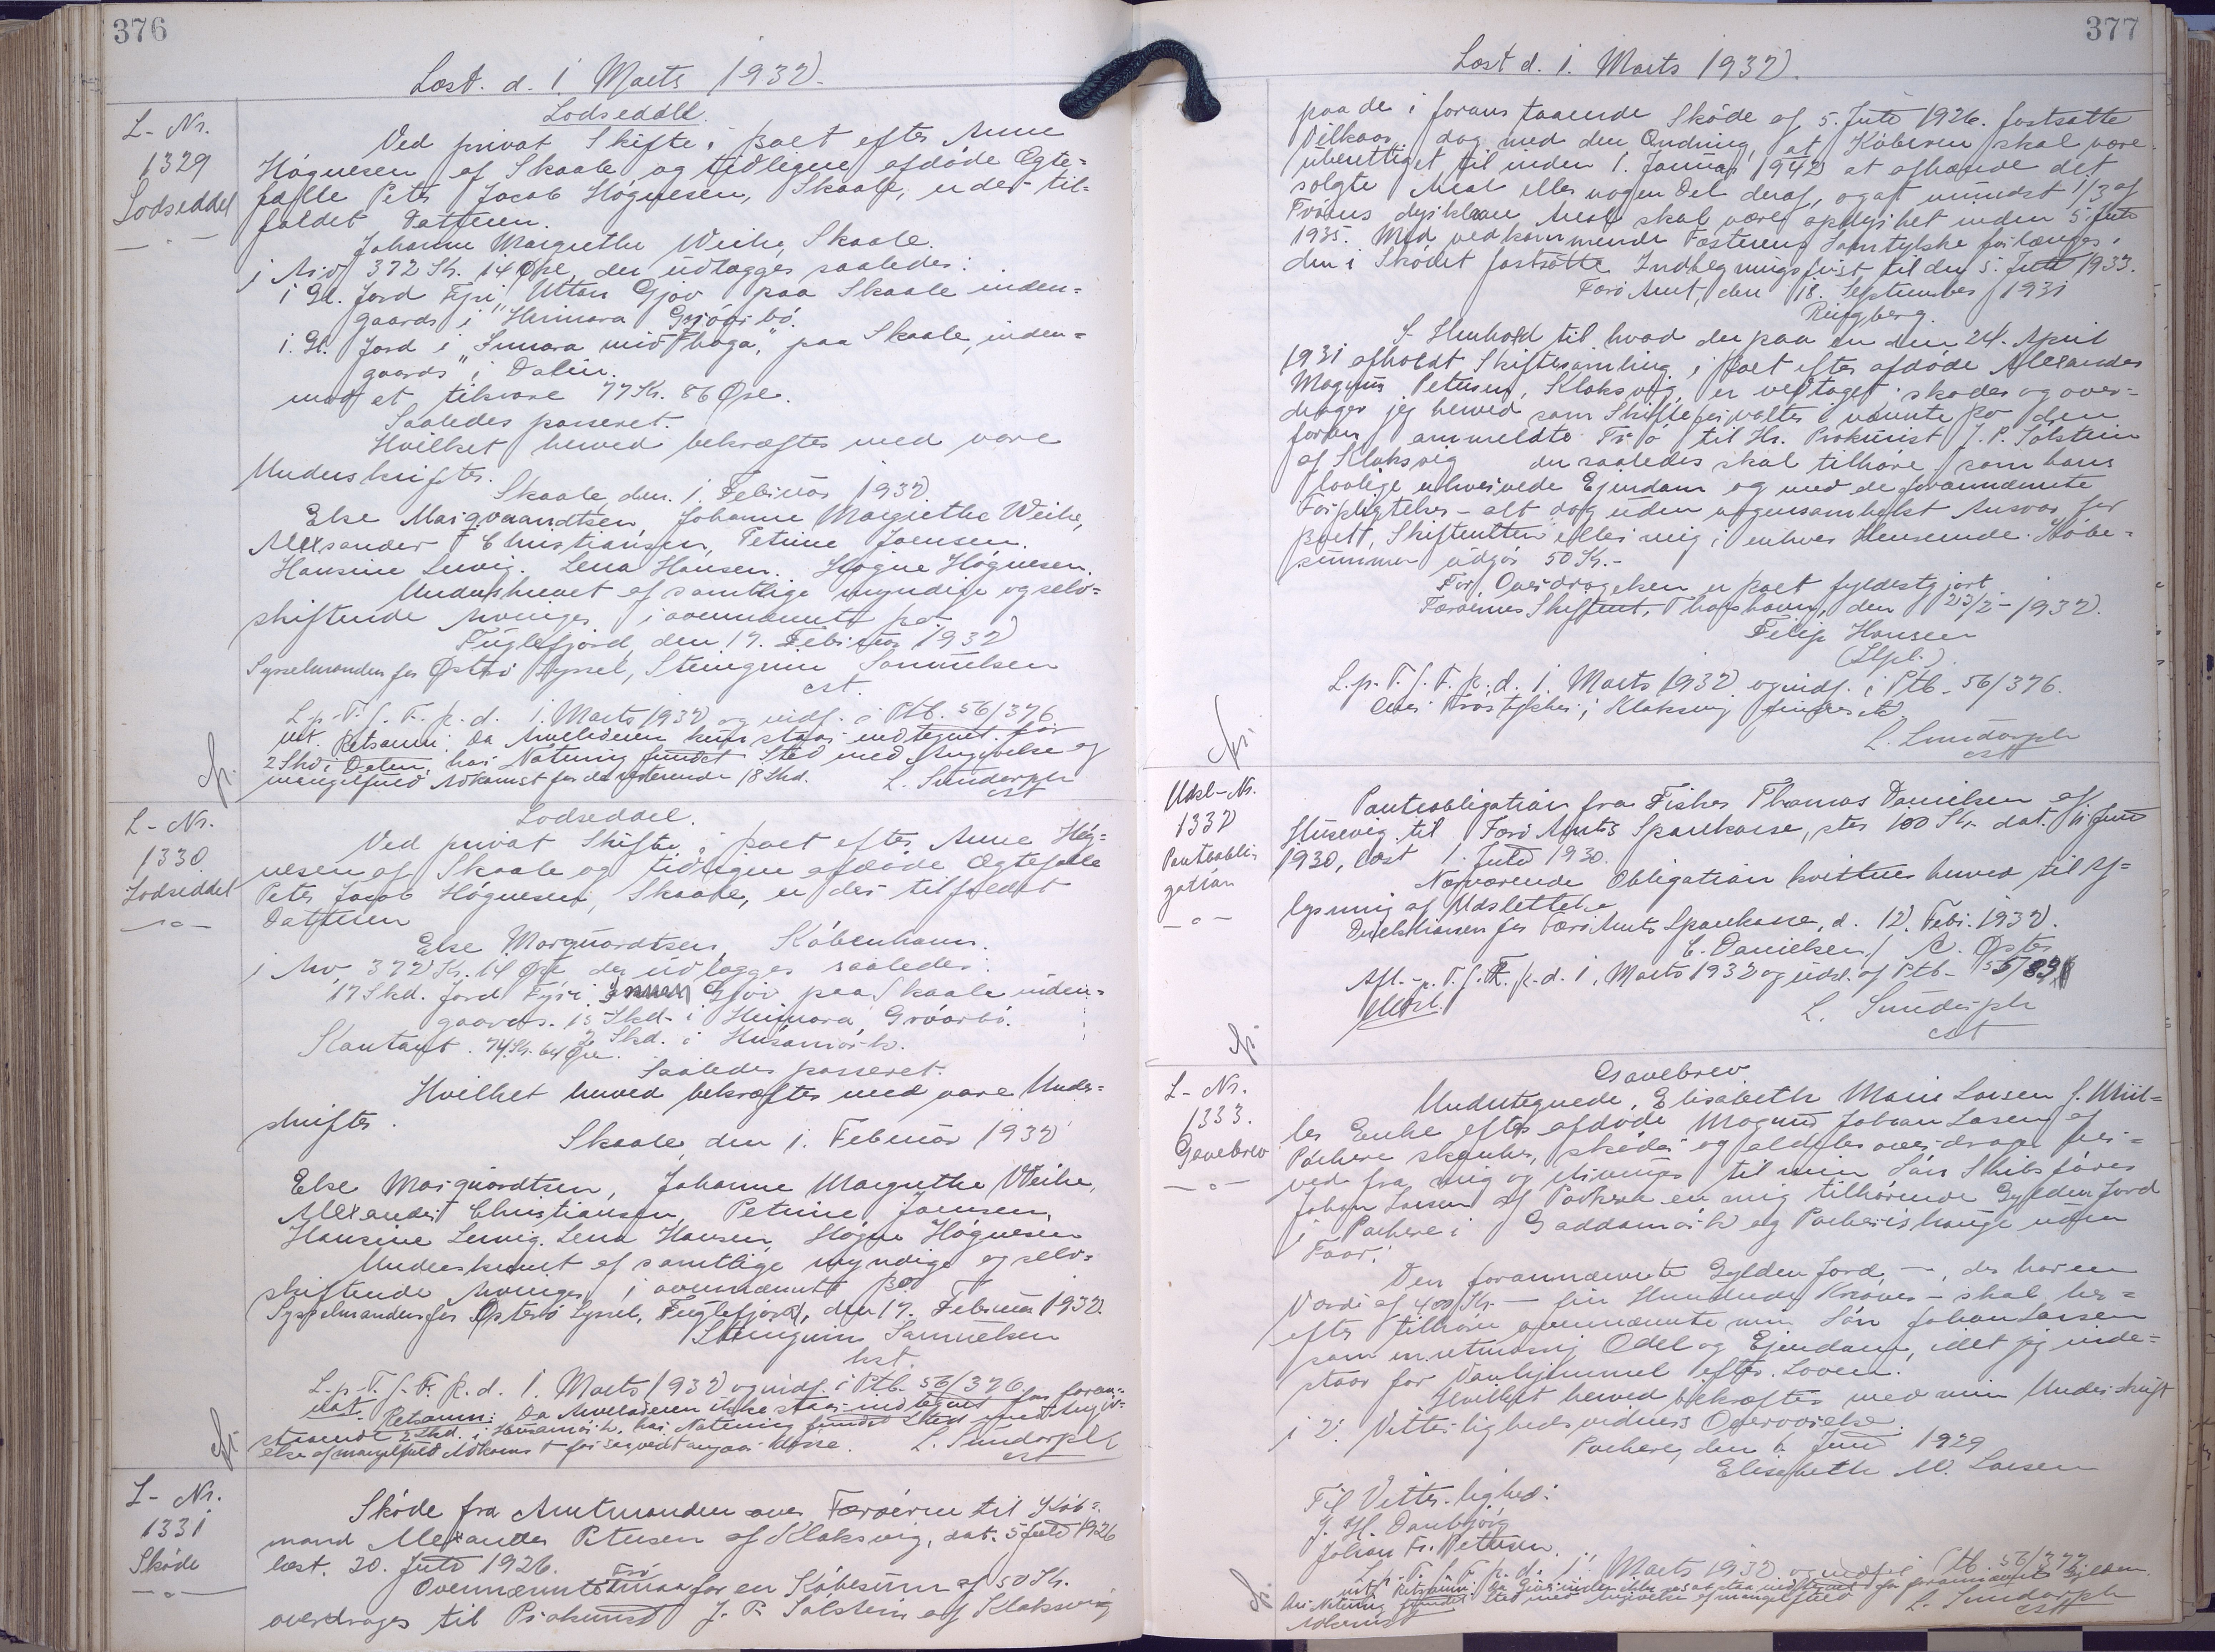 376
Læst. d. 1. Marts 1932.
L-Nr.
1329
Lodseddel
Lodseddel.
Ved privat Skifte i Boet efter Anne
Høgnesen af Skaale og tidligere afdøde Ægte=
fælle Peter Jacob Høgnesen, Skaale, er der til=
faldet Datteren
Johanne Margrethe Weihe, Skaale.
i Arv 372 Kr. 14 Øre, der udlægges saaledes:
i Gl. Jord Fyri Uttan Gjov paa Skaale inden=
gaards i Heimara Gróvi bó.
i Gl. Jord i "Innara mið haga," paa Skaale, inden=
gaards i Dalin.
med et tilsvar 77 Kr. 86 Øre.
Saaledes passeret.
Hvilket herved bekræftes med vore
Underskrifter.
Skaale den. 1. Februar 1932.
Else Marqvaardtsen, Johanne Margrethe Weihe,
Alexsander Christiansen, Petrine Joensen.
Hansine Lervig. Lena Hansen. Høgne Høgnesen.
Underskrevet af samtlige myndige og selv=
skiftende Arvinger i ovennævnte Bo.
Fuglefjord, den 17. Februar 1932
Sysselmanden for Østerø Syssel, Steingrim Samuelsen
cst.
L. p. T. f. F. K. d. 1. Marts 1932 og indf. i Ptb. 56/376
ut. Retsanm: Da Arveladeren kun staar indtegnet for
2 Skd. i Dalen, har Notering fundet Sted med Angivelse af
mangelfuld Adkomst for de resterende 18 Skd. L. Sundorph
cst
L-Nr.
1330
Lodseddel
Lodseddel.
Ved privat Skifte i Boet efter Anne Høg=
nesen af Skaale og tidligere afdøde Ægtefælle
Peter Jacob Høgnesen, Skaale, er der tilfaldet
Datteren
Else Marquardtsen, København.
i Arv 372 Kr. 14 Øre, der udlægges saaledes:
17 Skd. Jord Fyri Gjov paa Skaale inden=
gaards. 15 Skd. i Heimara Gróarbó.
2 Skd. i Húsamørk.
Kontant. 74 Kr. 64 Øre.
Saaledes passeret.
Hvilket herved bekræftes med vore Under=
skrifter.
Skaale, den 1. Februar 1932
Else Marquardtsen, Johanne Margrethe Weihe,
Alexander Christiansen, Petrine Joensen,
Hansine Lervig. Lena Hansen, Høgne Høgnesen
Underskrevet af samtlige myndige og selv=
skiftende Arvinger i ovennævnte Bo
Sysselmanden for Østerø Syssel, Fuglefjord, den 17. Februar 1932.
Steingrim Samuelsen
cst.
L. p. T. f. F. K. d. 1. Marts 1932 og indf. i Ptb. 56/376
ut. Retsanm: Da Arveladeren ikke staar indtegnet for foran=
staaende 2 Skd. i Húsamørk, har Notering fundet Sted med Angiv=
else af mangelfuld Adkomst for saavidt angaar disse. L. Sundorph
cst
L-Nr.
1331
Skøde
Skøde fra Amtmanden over Færøerne til Køb=
mand Alexander Petersen af Klaksvig, dat. 5 Juli 1926
læst. 20. Juli 1926.
Ovennævnte Trø for en Købesum af 50 Kr.
overdrages til Prokurist J. P. Solstein af Klaksvig
377
Læst d. 1. Marts 1932.
paa de i foranstaaende Skøde af 5. Juli 1926. fastsatte
Vilkaar, dog med den Ændring, at Køberen skal være
uberettiget til inden 1. Januar 1942 at afhænde det
solgte Areal eller nogen Del deraf, og at mindst 1/3 af
Trøens dyrkbare Areal skal være opdyrket inden 5. Juli
1935. Med vedkommende Fæsterens Samtykke forlænges
den i Skødet fastsatte Indhegningsfrist til den 5. Juli 1933.
Færø Amt, den 18. September 1931
Ringberg.
I Henhold til hvad der paa en den 24. April
1931 afholdt Skiftesamling i Boet efter afdøde Alexander
Magnus Petersen, Klaksvig, er vedtaget skøder og over=
drager jeg herved som Skifteforvalter i nævnte Bo den
foran ommeldte Trø til Hr. Prokurist J. P. Solstein
af Klaksvig der saaledes skal tilhøre som hans
lovlige erhvervede Ejendom og med de forannævnte
Forpligtelser - alt dog uden nogensomhelst Ansvar for
Boet, Skifteretten eller mig i enhver Henseende. Købe=
summen udgør 50 Kr.-
For Overdragelsen er Boet fyldestgjort.
Færøernes Skifteret, Thorshavn, den 23/2-1932.
Filip Hansen
(Stpl.)
L. p. T. f. F. K. d. 1. Marts 1932 og indf. i Ptb. 56/376.
L. Sundorph
cst
Udsl-Nr.
1332
Panteobli=
gation
Panteobligation fra Fisker Thomas Danielsen af
Husevig til Færø Amts Sparekasse, stor 100 Kr. dat. 11 Juni
1930, læst 1. Juli 1930.
Nærværende Obligation kvitteres herved til Af=
lysning af Udslettelse
Direktionen for Færø Amts Sparekasse, d. 12. Febr. 1932.
E. Danielsen / A. Øster
Afl. p. T. f. F. K. d. 1. Marts 1932 og udsl. af Ptb.
Udsl.
L. Sundorph
cst
L-Nr.
1333.
Gavebrev
Gavebrev
Undertegnede, Elisabeth Marie Larsen f. Mül=
ler Enke efter afdøde Magnus Johan Larsen af
Porkere skænker, skøder og aldeles overdrager her=
ved fra mig og Arvinger til min Søn Skibsfører
Johan Larsen af Porkere en mig tilhørende Gylden Jord
i Porkere i Gaddamørk og Porkerishauge uden
Faar.
Den forannævnte Gylden Jord, -, der har en
Værdi af 400 Kr. - fire Hundrede Kroner - skal her=
efter tilhøre ovennævnte min Søn Johan Larsen
som en retmæssig Odel og Ejendom, idet jeg inde=
staar for Vanhjemmel efter Loven.
Hvilket herved bekræftes med min Underskrift
i 2 Vitterlighedsvidners Overværelse.
Porkere, den 6 Juni 1929
Elisabeth M. Larsen
Til Vitterlighed:
J. H. Danbjørg
Johan Fr. Petersen.
L. p. T. f. F. K. d. 1. Marts 1932 og indf. i Ptb. 56/377.
L. Sundorph
cst
Adkomst